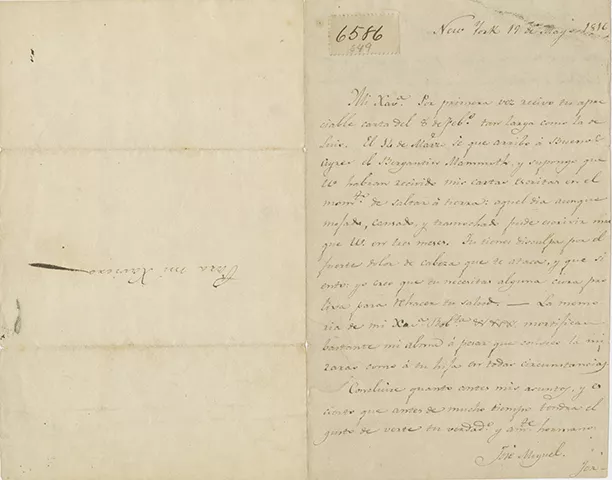 6586
New York 17 de Mayo 1816
Mi Xavª. Por primera vez recivo tu apre
ciable carta del 8 de Febº. tan larga como la de
Luis. El 14 de Marzo se que arribó à Buenos
Ayres el Bergantin Mammoth, y supongo que
W. habran recivido mis cartas escritas en el
momtº. de saltar à tierra: aquel dia aunque
mojado, cansado, y trasnochado pude escrivir mas
que W. en tres meses. Tu tienes disculpa por el
fuerte dolor de cabeza que te ataca, y que si
ento: yo creo que tu necesitas alguna cura pro
lixa para rehacer tu salud. — La memo
ria de mi Xavª
bastante mi alma à pesar que considero la mi
raras como à tu hija en todas circunstancias
Concluiré quanto antes mis asuntos, y es
ciones que antes de mucho tiempo tendra el
gusto de verte tu verdadº. y amte. hermano.
José Miguel.
Para mi Xaviera